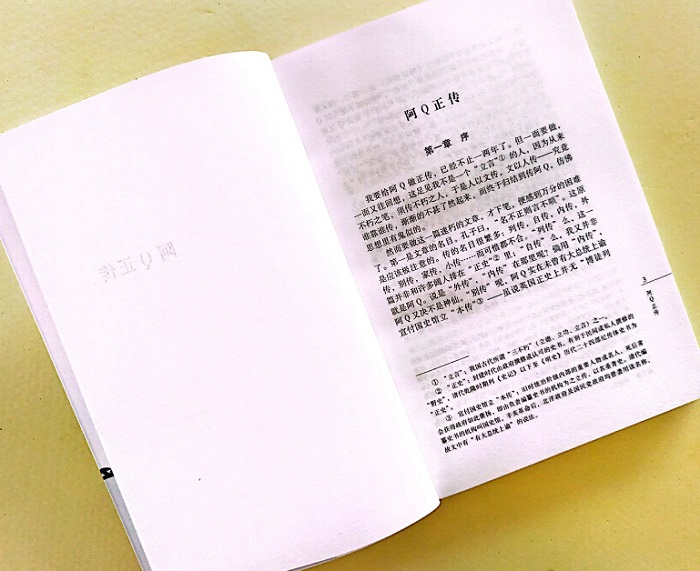 阿Q正传
阿Q正传
第一章 序
我要给阿Q做正传，已经不止一两年了。但一面要做，
一面又往回想，这足见我不是一个“立言”①的人，因为从来
不朽之笔，须传不朽之人，于是人以文传，文以人传——究竟
谁靠谁传，渐渐的不甚了然起来，而终于归结到传阿Q，仿佛
思想里有鬼似的。
然而要做这一篇速朽的文章，才下笔，便感到万分的困难
了。第一是文章的名目。孔子曰，“名不正则言不顺”。这原
是应该极注意的。传的名目很繁多：列传，自传，内传，外
传，别传，家传，小传……而可惜都不合。“列传”么，这一
篇并非和许多阔人排在“正史”②里；“自传”么，我又并非
就是阿Q。说是“外传”，“内传”在那里呢？倘用“内传”，
阿Q又决不是神仙。“别传”呢，阿Q实在未曾有大总统上谕
宣付国史馆立“本传”③——虽说英国正史上并无“博徒列
① “立言”，我国古代所谓“三不朽”（立德、立功、立言）之一。
② “正史”：封建时代由政府撰修或认可的史书，有别于民间或私人撰修的
“野史”，清代乾隆时期列《史记》以下至《明史》历代二十四部纪传体史书为
“正史”。
③ 宣付国史馆立“本传”，旧时统治阶级内部的重要人物或名人，死后常
故文中有“有大总统上谕”的说法。
3
阿Q正传